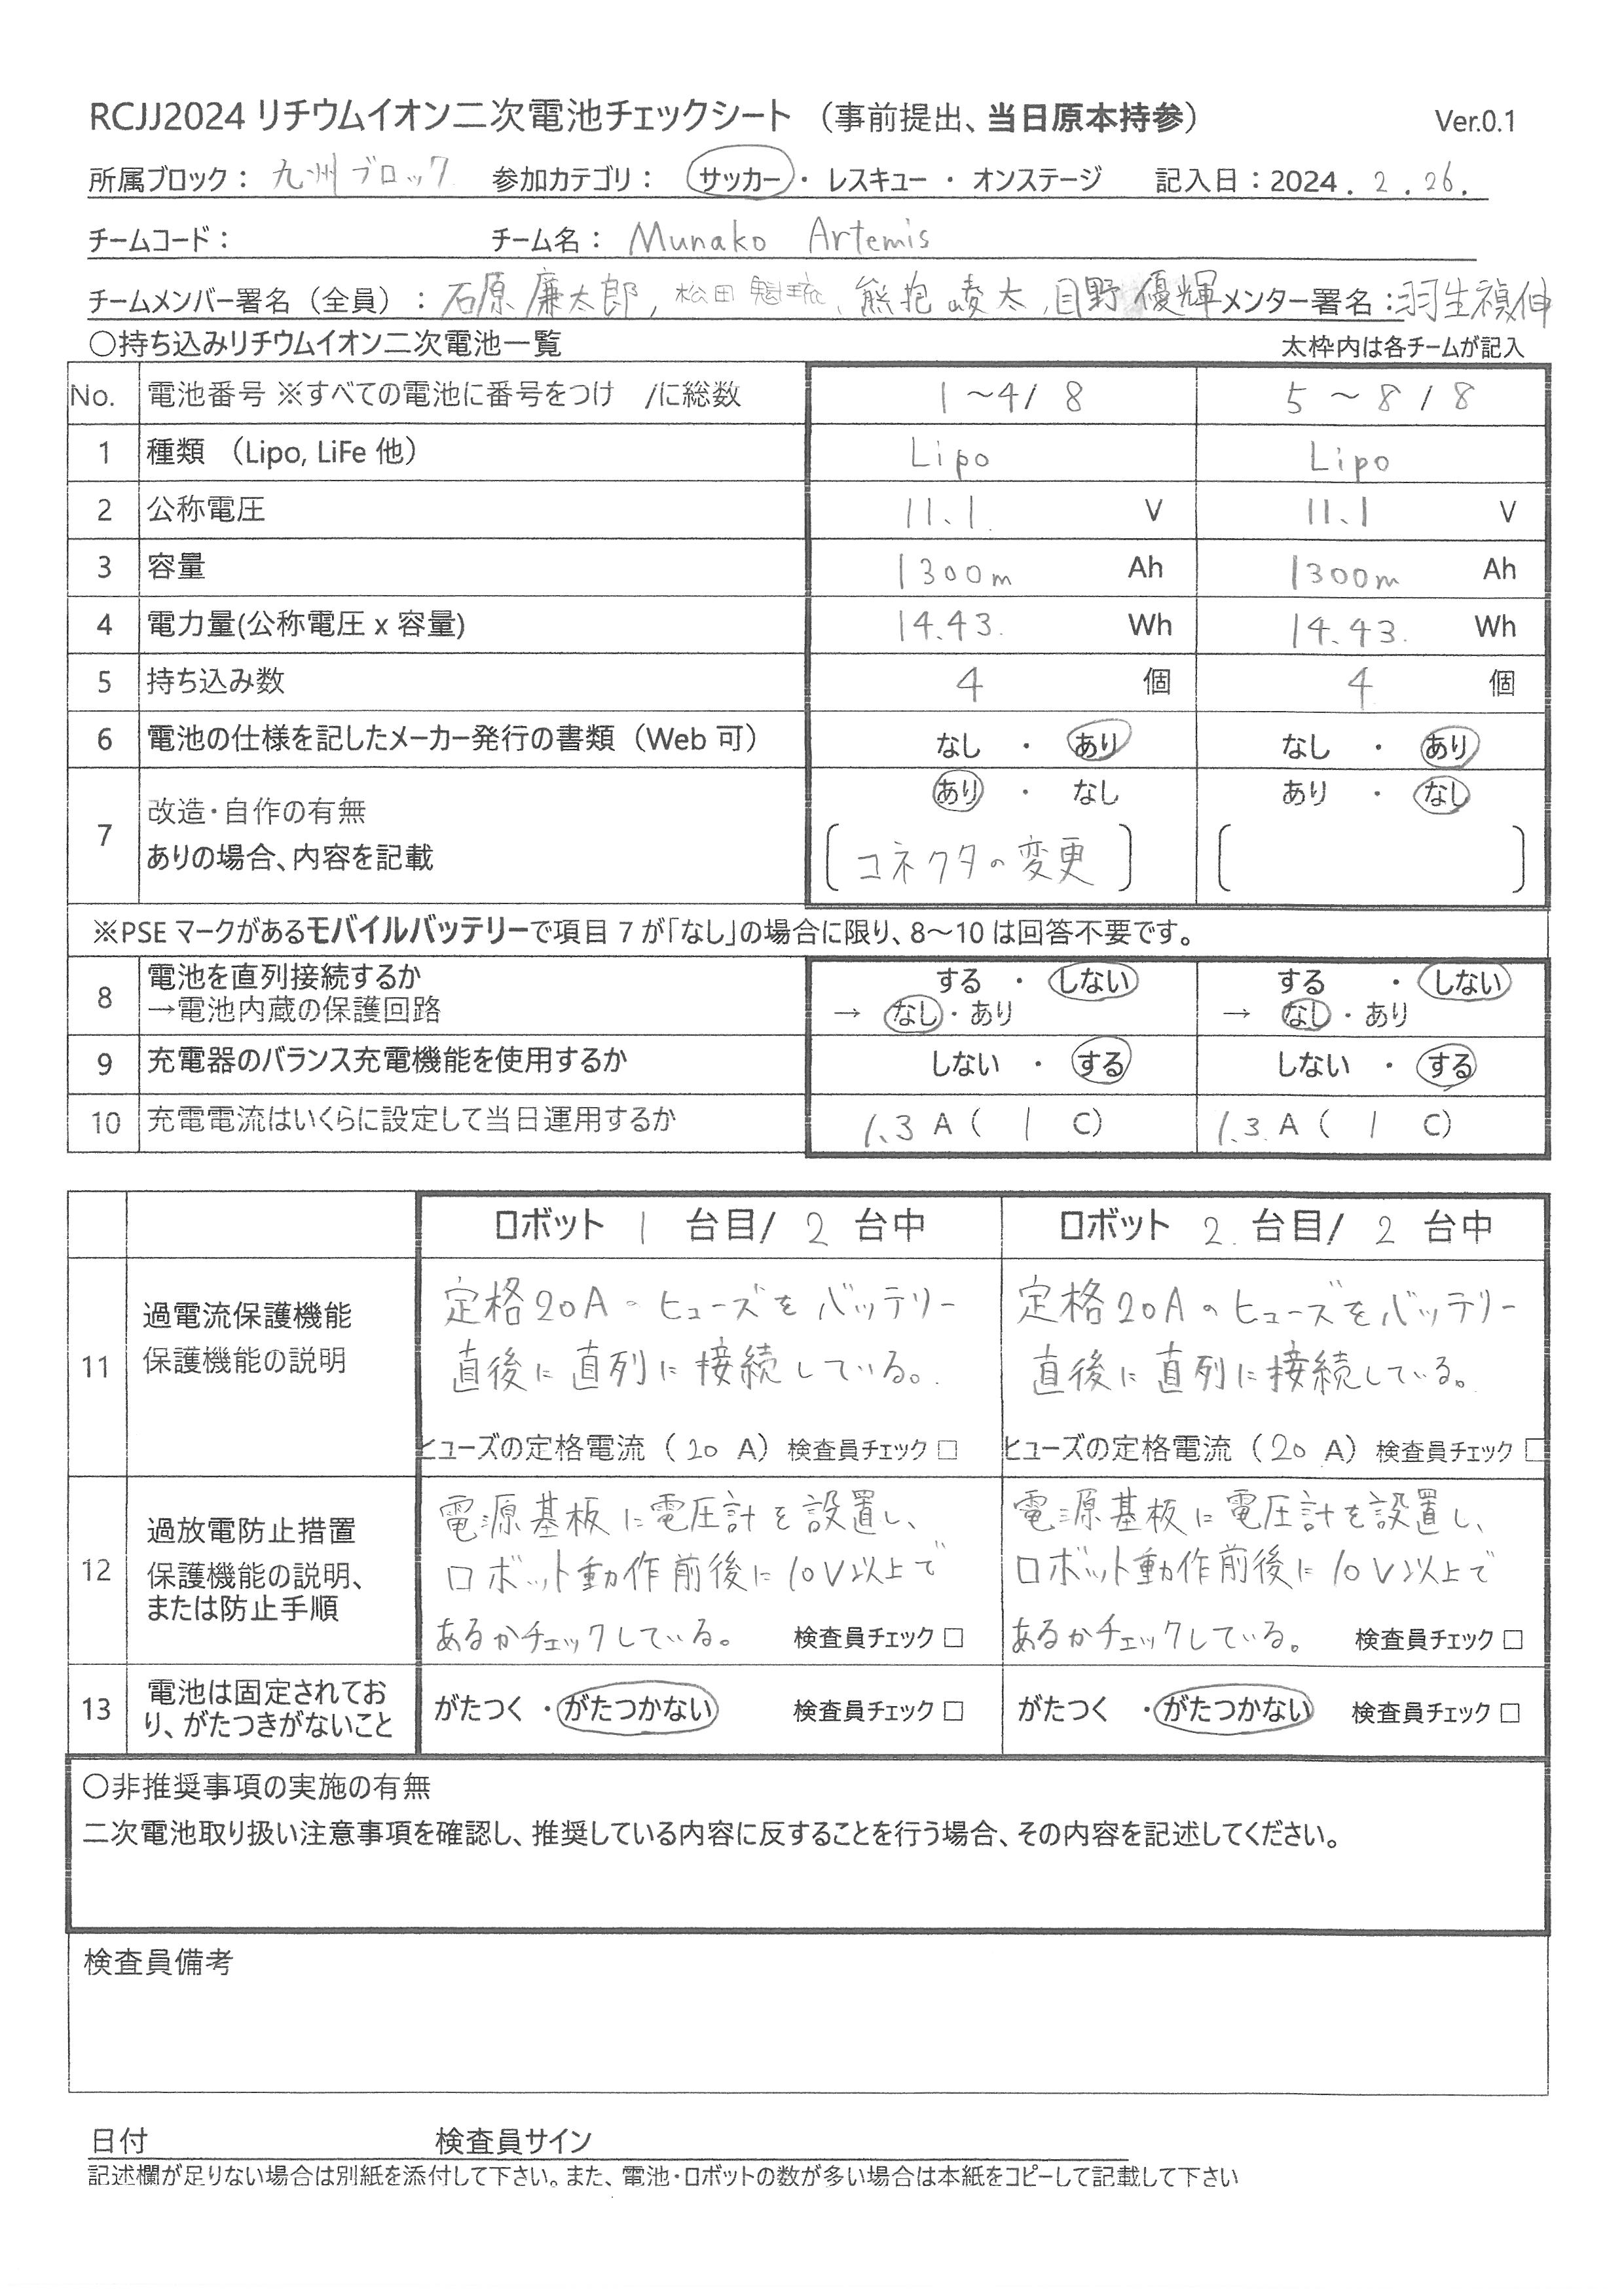 RCJJ2024 リチウムイオン二次電池チェックシート （事前提出、当日原本持参） Ver.0.1
所属ブロック： 九州ブロック 参加カテゴリ： サッカー ・ レスキュー ・ オンステージ 記入日：2024 . 2 . 26 .
チームコード： チーム名： Munako Artemis
チームメンバー署名（全員）： 石原 廉太郎, 松田 魁琉, 熊抱 崚太, 目野 優輝 メンター署名：羽生禎伸
○持ち込みリチウムイオン二次電池一覧 太枠内は各チームが記入
No. 電池番号 ※すべての電池に番号をつけ /に総数 1～4/ 8 5～8 / 8
1 種類 （Lipo, LiFe 他） Lipo Lipo
2 公称電圧 11.1 V 11.1 V
3 容量 1300m Ah 1300m Ah
4 電力量(公称電圧 x 容量) 14.43 Wh 14.43 Wh
5 持ち込み数 4 個 4 個
6 電池の仕様を記したメーカー発行の書類（Web 可） なし ・ あり なし ・ あり
7 改造・自作の有無 あり ・ なし あり ・ なし
ありの場合、内容を記載 [ コネクタの変更 ] [ ]
※PSE マークがあるモバイルバッテリーで項目 7 が「なし」の場合に限り、8～10 は回答不要です。
8 電池を直列接続するか する ・ しない する ・ しない
→電池内蔵の保護回路 → なし ・ あり → なし ・ あり
9 充電器のバランス充電機能を使用するか しない ・ する しない ・ する
10 充電電流はいくらに設定して当日運用するか 1.3 A ( 1 C) 1.3 A ( 1 C)
ロボット 1 台目/ 2 台中 ロボット 2 台目/ 2 台中
11 過電流保護機能
保護機能の説明
定格20Aのヒューズをバッテリー
直後に直列に接続している。
ヒューズの定格電流（20 A）検査員チェック □
定格20Aのヒューズをバッテリー
直後に直列に接続している。
ヒューズの定格電流（20 A）検査員チェック □
12 過放電防止措置
保護機能の説明、
または防止手順
電源基板に電圧計を設置し、
ロボット動作前後に10V以上で
あるかチェックしている。 検査員チェック □
電源基板に電圧計を設置し、
ロボット動作前後に10V以上で
あるかチェックしている。 検査員チェック □
13 電池は固定されてお
り、がたつきがないこと
がたつく ・がたつかない 検査員チェック □
がたつく ・がたつかない 検査員チェック □
○非推奨事項の実施の有無
二次電池取り扱い注意事項を確認し、推奨している内容に反することを行う場合、その内容を記述してください。
検査員備考
日付 検査員サイン
記述欄が足りない場合は別紙を添付して下さい。また、電池・ロボットの数が多い場合は本紙をコピーして記載して下さい